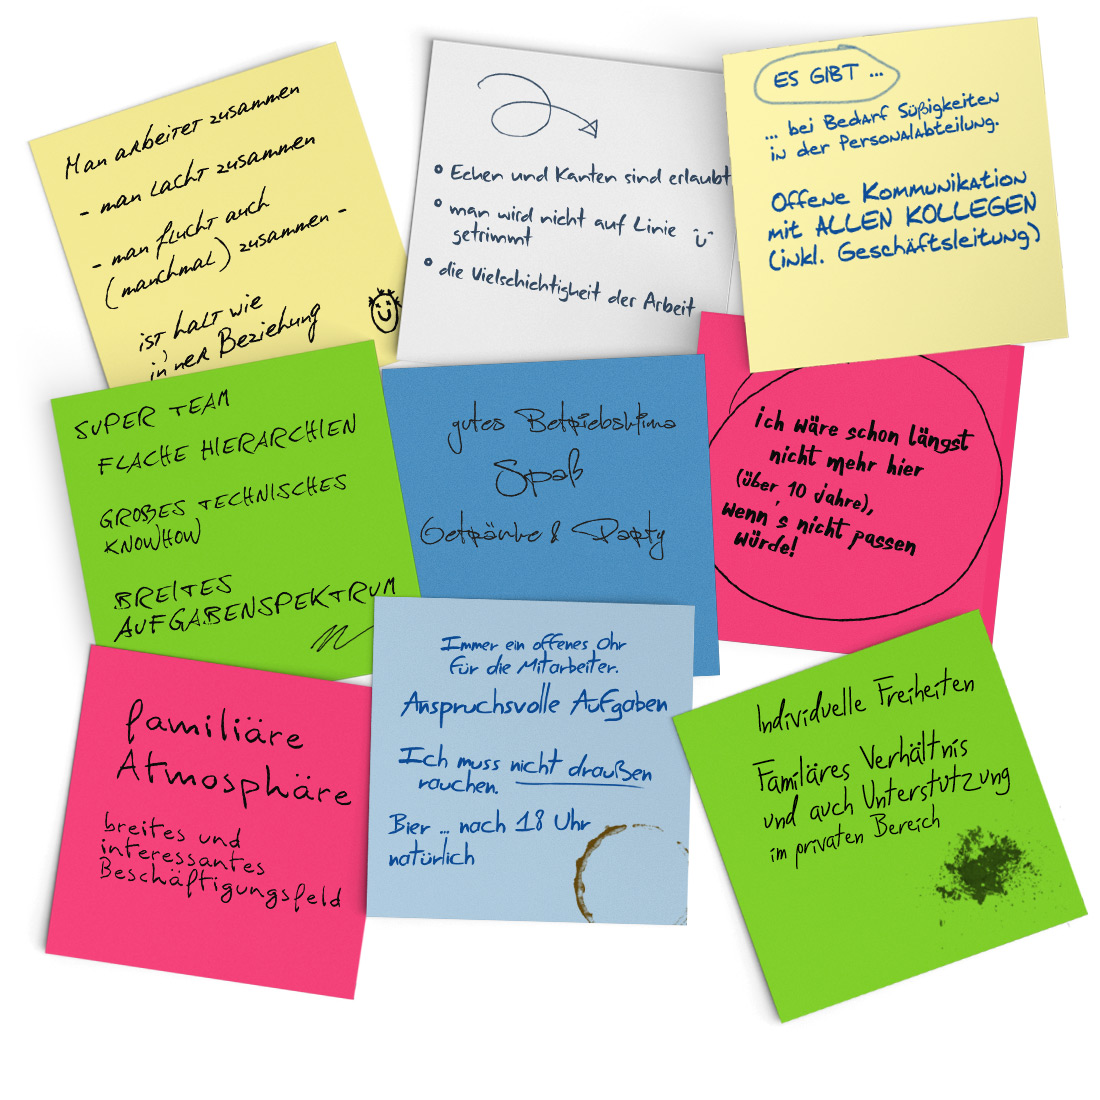 Man arbeitet zusammen
- man lacht zusammen
- man flucht auch
(manchmal) zusammen -
ist halt wie
in'ner Beziehung
Ecken und Kanten sind erlaubt
man wird nicht auf Linie
getrimmt
die Vielschichtigkeit der Arbeit
ES GIBT ...
... bei Bedarf Süßigkeiten
in der Personalabteilung.
Offene Kommunikation
mit ALLEN KOLLEGEN
(inkl. Geschäftsleitung)
SUPER TEAM
FLACHE HIERARCHIEN
GROßES TECHNISCHES
KNOWHOW
BREITES
AUFGABENSPEKTRUM
gutes Betriebsklima
Spaß
Getränke & Party
ich wäre schon längst
nicht mehr hier
(über 10 Jahre),
wenn's nicht passen
würde!
familiäre
Atmosphäre
breites und
interessantes
Beschäftigungsfeld
Immer ein offenes Ohr
für die Mitarbeiter.
Anspruchsvolle Aufgaben
Ich muss nicht draußen
rauchen.
Bier ... nach 18 Uhr
natürlich
Individuelle Freiheiten
Familäres Verhältnis
und auch Unterstützung
im privaten Bereich